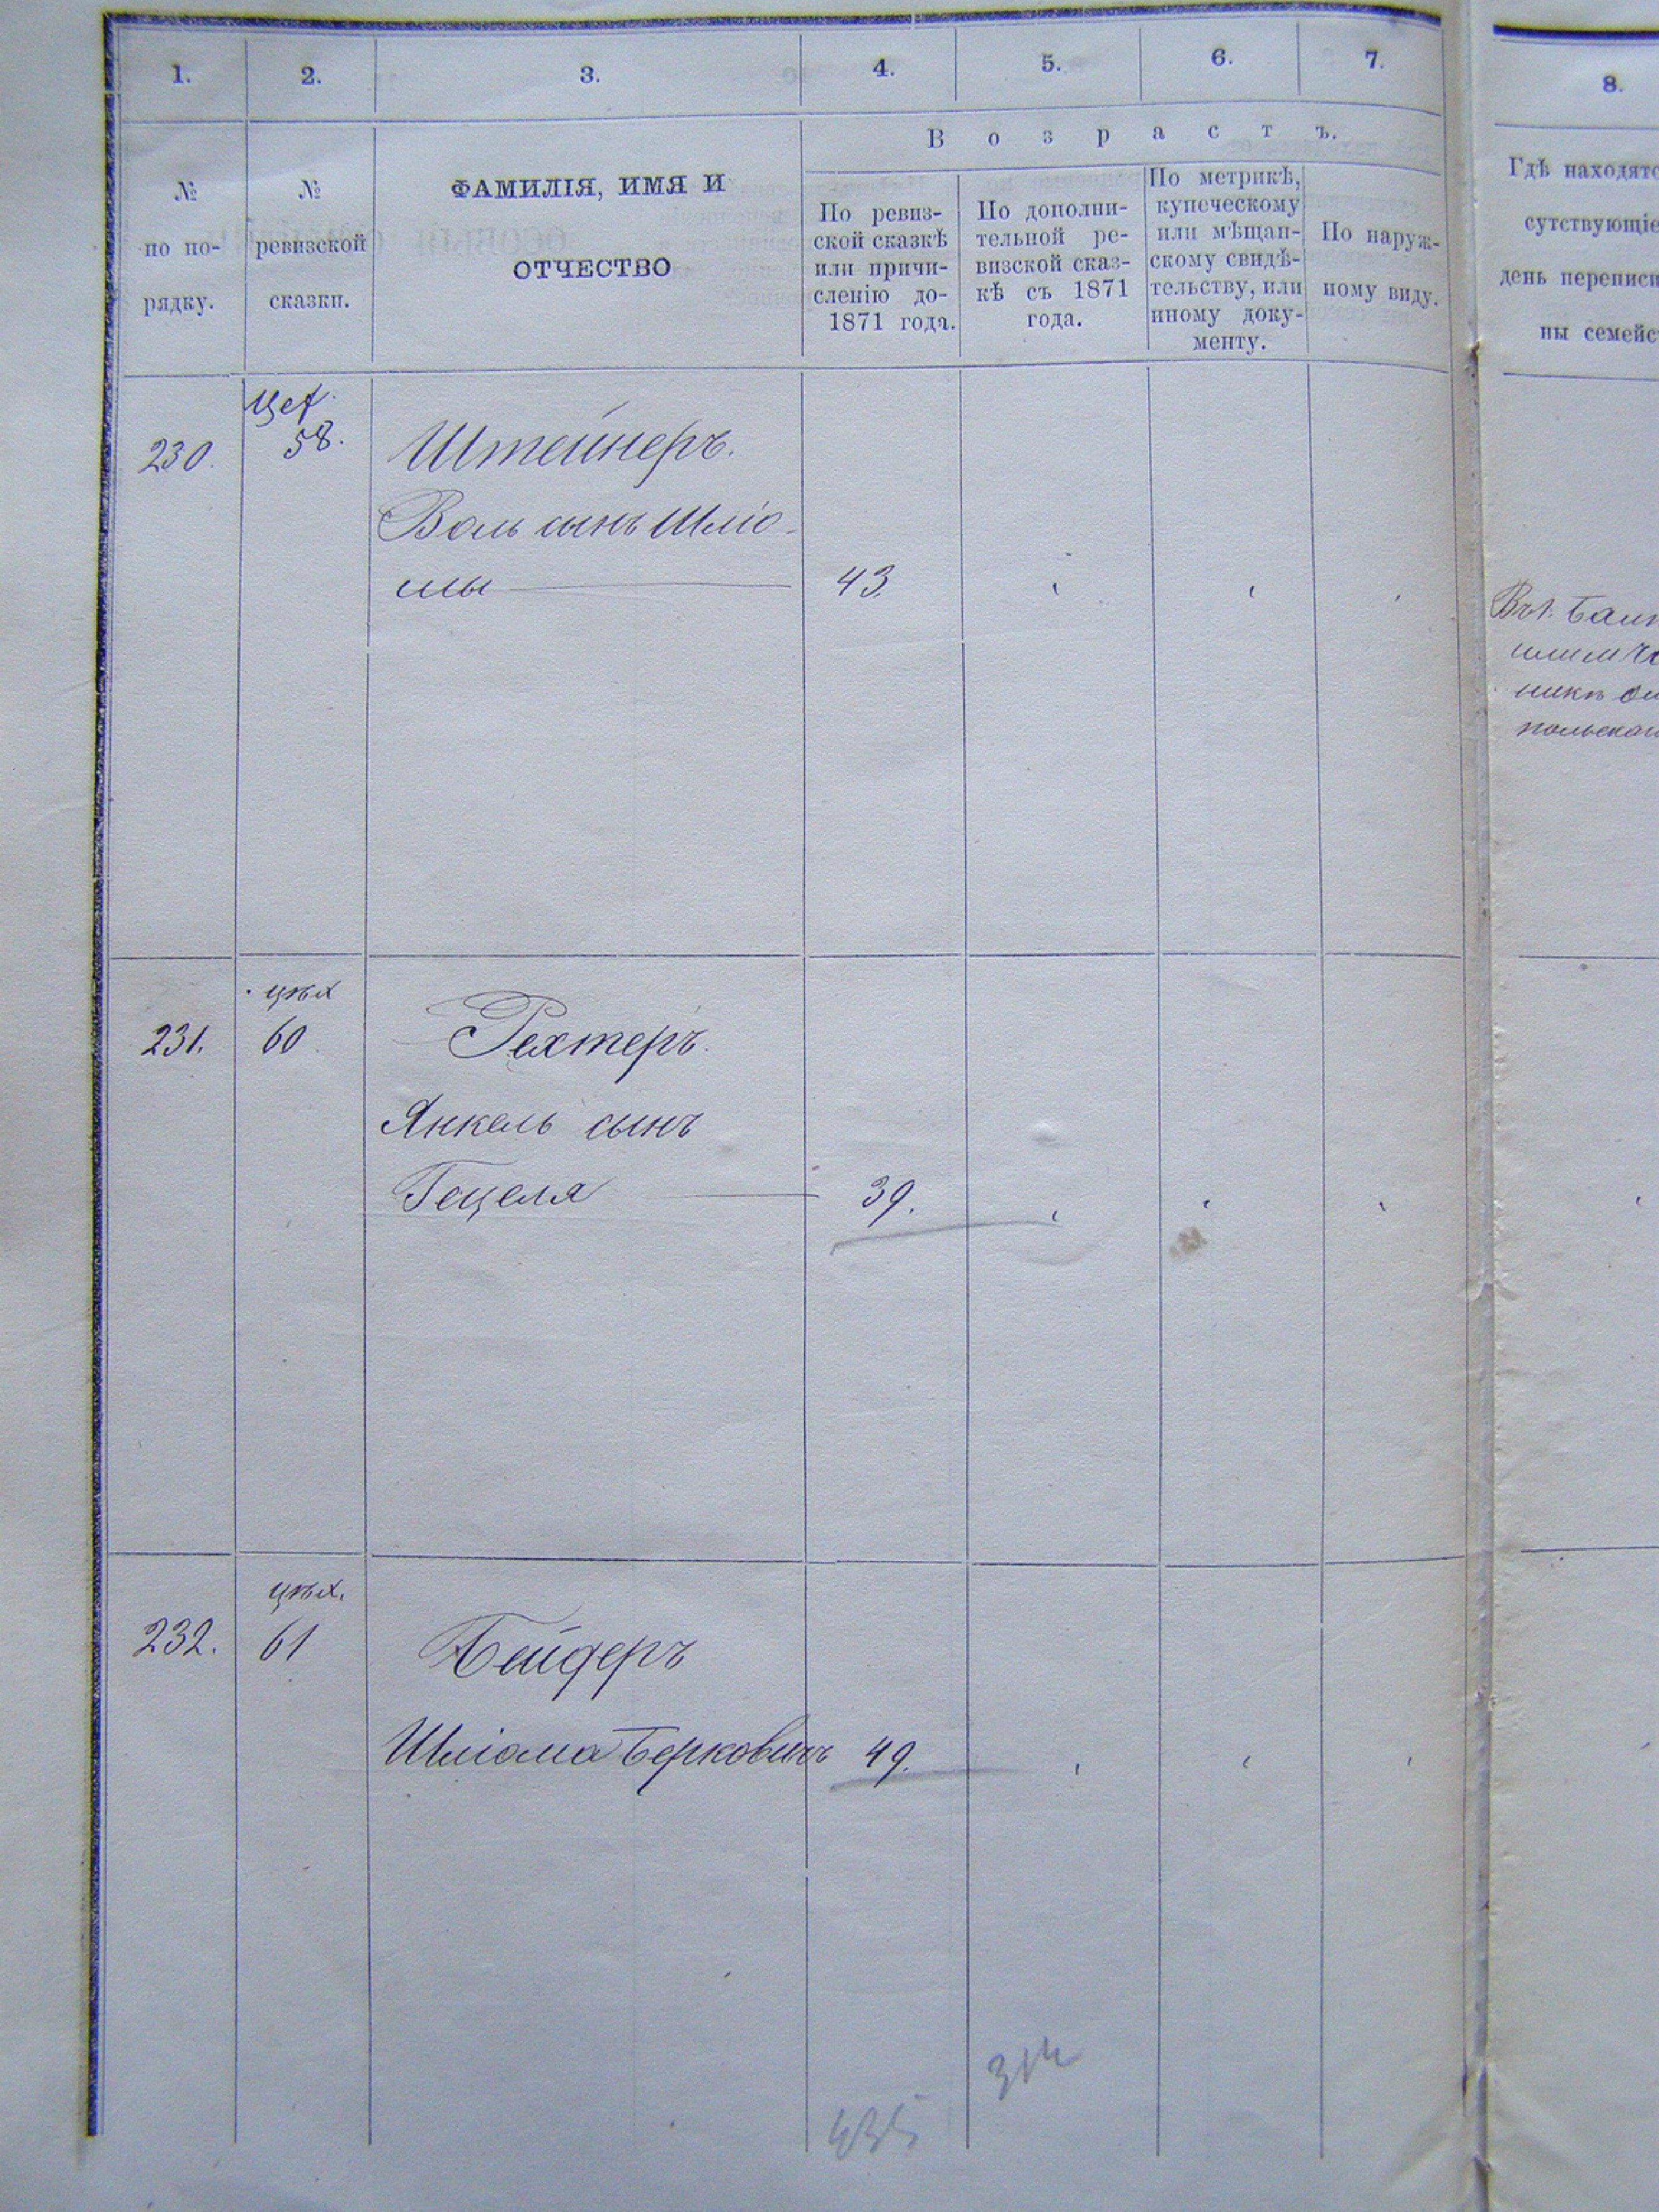 1. 2. 3. 4. 5. 6. 7. 8.
Возрастъ.
№
по по-
рядку.
№
ревизской
сказки.
ФАМИЛІЯ, ИМЯ И
ОТЧЕСТВО
По ревиз-
ской сказкѣ
или причи-
сленію до-
1871 года.
По дополни-
тельной ре-
визской сказ-
кѣ съ 1871
года.
По метрикѣ,
купеческому
или мѣщан-
скому свидѣ-
тельству, или
иному доку-
менту.
По наруж-
ному виду.
Гдѣ находятс
сутствующіе
день переписи
ны семейс
230. 58. Штейнеръ.
Воль сынъ Шліо-
мы 43.
цех
231. 60 Рехтеръ.
Янкель сынъ
Гецеля 39.
цех.
232. 61 Бейдеръ
Шліома Берковичъ 49.